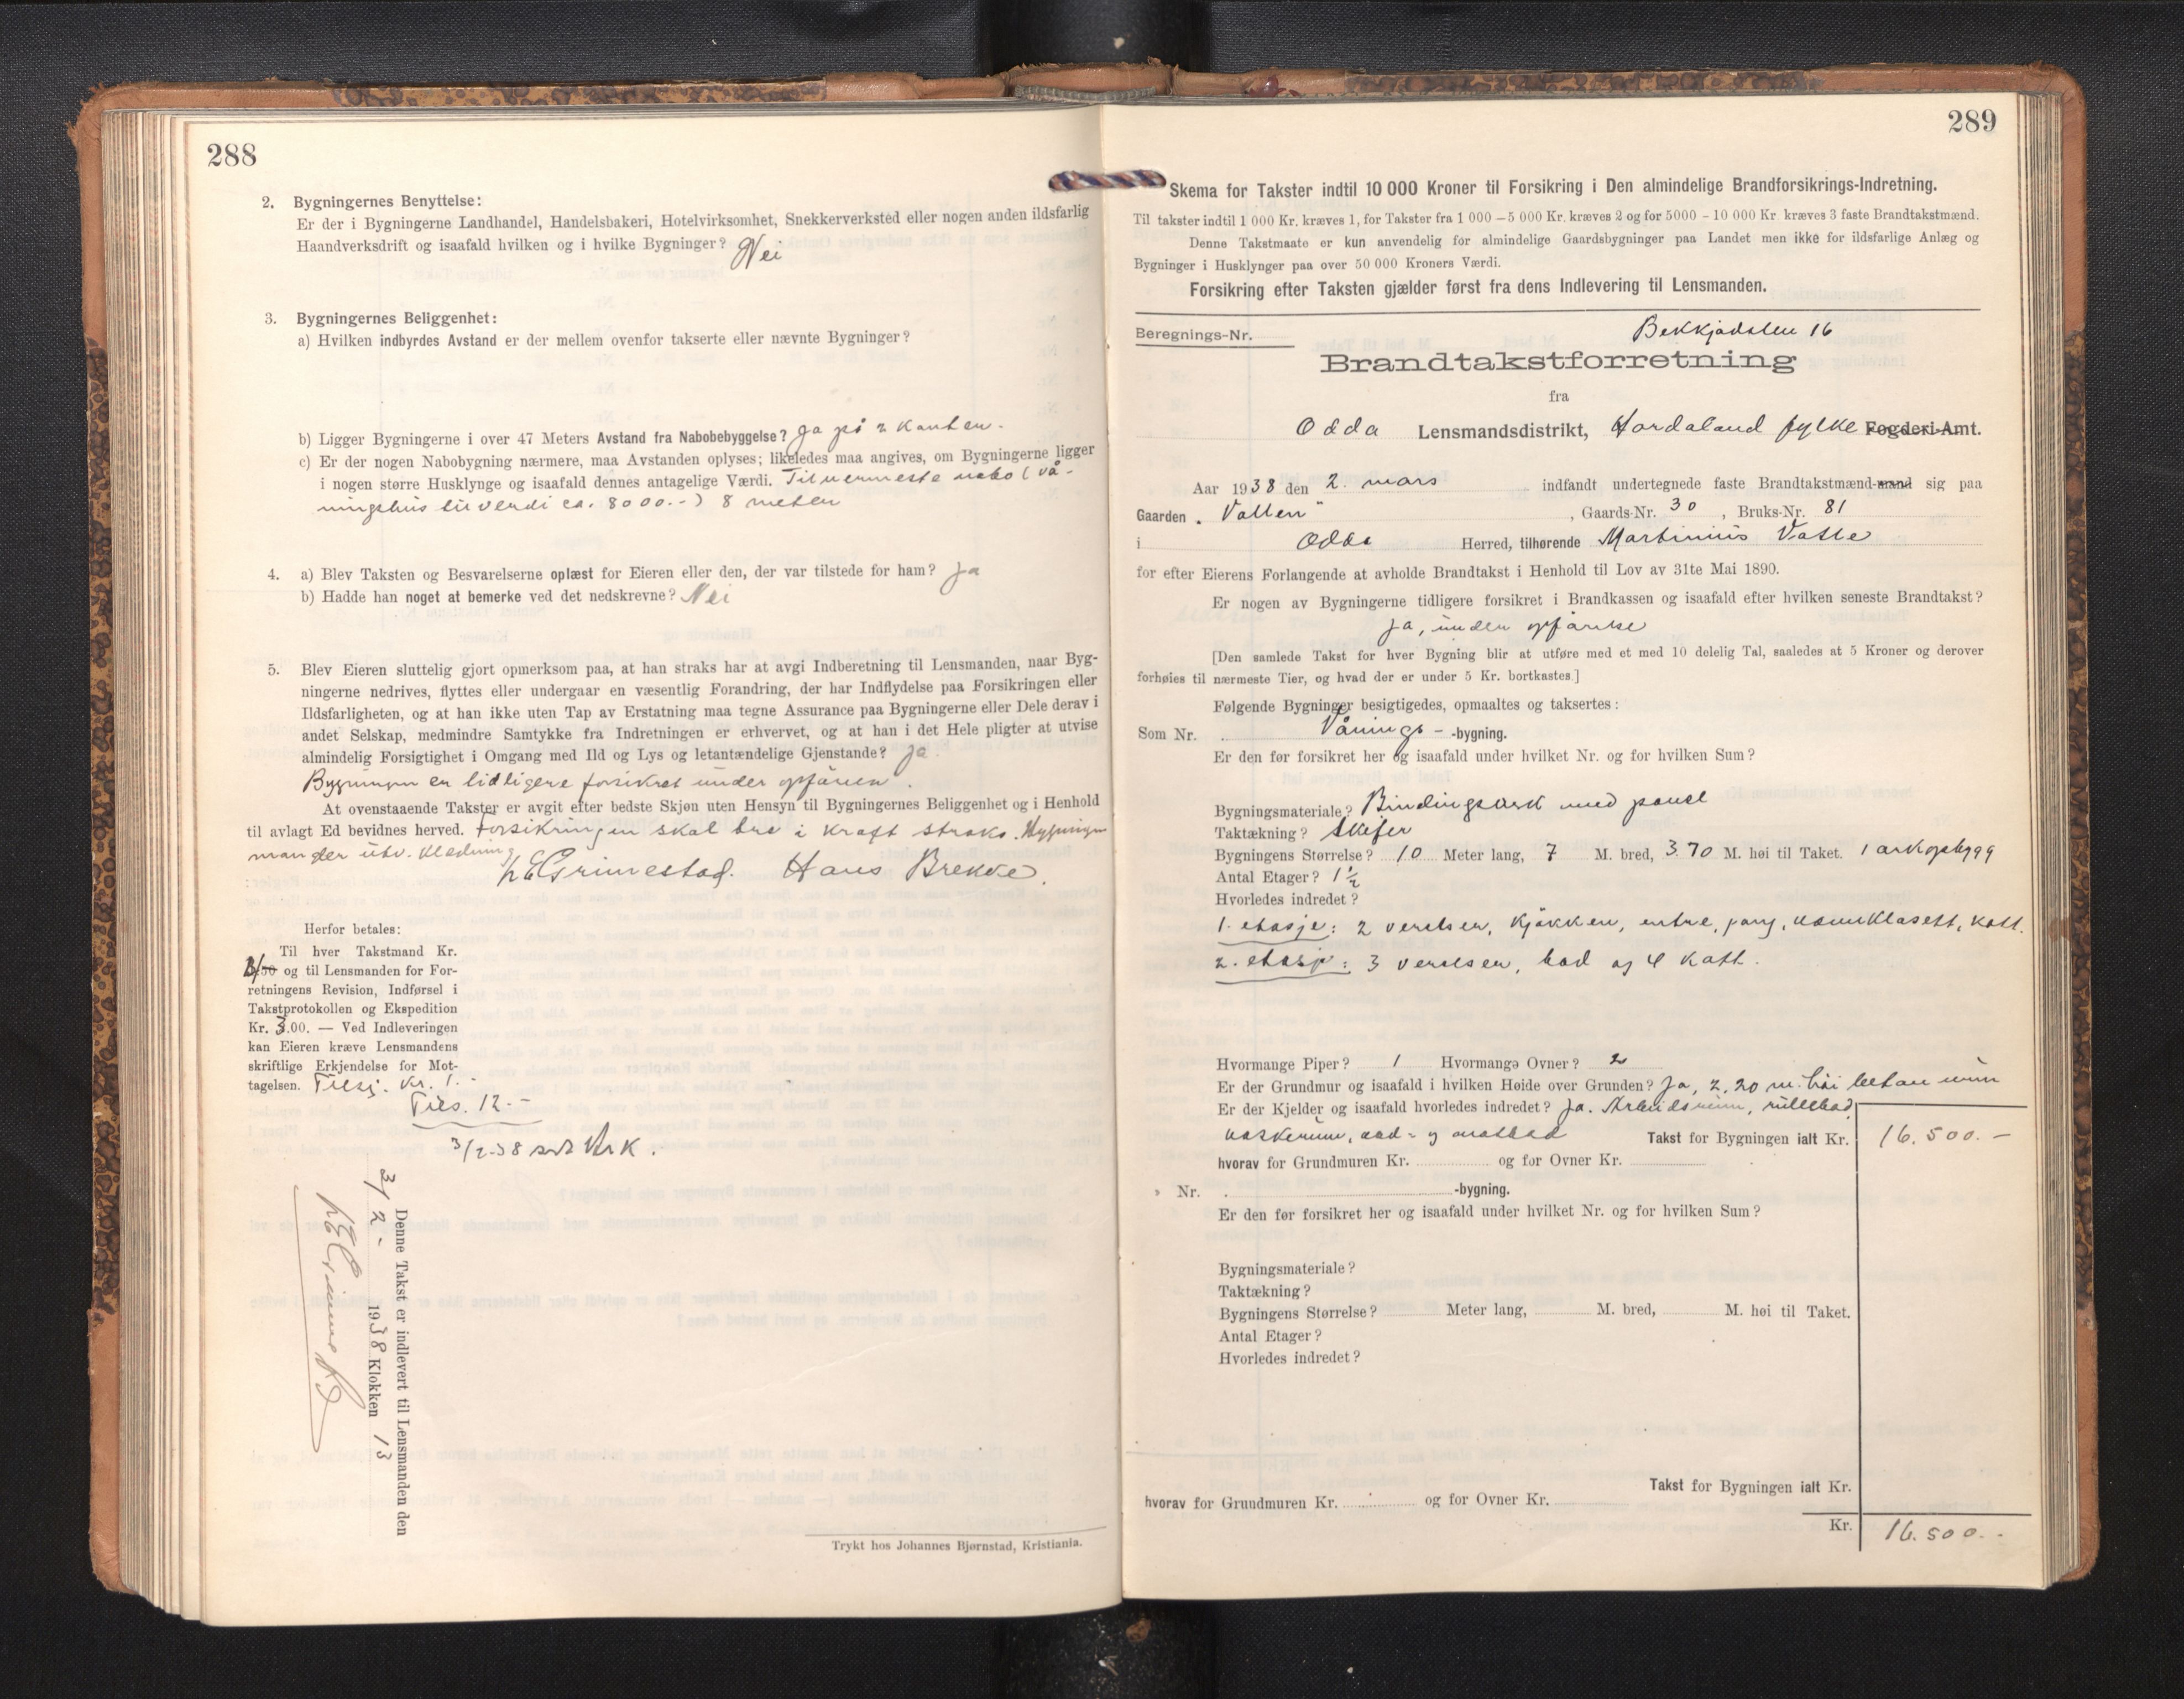 288
2. Bygningernes Benyttelse:
Er der i Bygningerne Landhandel, Handelsbakeri, Hotelvirksomhet, Snekkerverksted eller nogen anden ildsfarlig
Haandverksdrift og isaafald hvilken og i hvilke Bygninger? Nei
3. Bygningernes Beliggenhet:
a) Hvilken indbyrdes Avstand er der mellem ovenfor takserte eller nævnte Bygninger?
b) Ligger Bygningerne i over 47 Meters Avstand fra Nabobebyggelse? Ja på 2 kanter.
c) Er der nogen Nabobygning nærmere, maa Avstanden oplyses; likeledes maa angives, om Bygningerne ligger
i nogen større Husklynge og isaafald dennes antagelige Værdi. Til nermeste nabo (vå-
ningshus til verdi ca. 8000.-) 8 meter
4. a) Blev Taksten og Besvarelserne oplæst for Eieren eller den, der var tilstede for ham? Ja
b) Hadde han noget at bemerke ved det nedskrevne? Nei
5. Blev Eieren sluttelig gjort opmerksom paa, at han straks har at avgi Indberetning til Lensmanden, naar Byg-
ningerne nedrives, flyttes eller undergaar en væsentlig Forandring, der har Indflydelse paa Forsikringen eller
Ildsfarligheten, og at han ikke uten Tap av Erstatning maa tegne Assurance paa Bygningerne eller Dele derav i
andet Selskap, medmindre Samtykke fra Indretningen er erhvervet, og at han i det Hele pligter at utvise
almindelig Forsigtighet i Omgang med Ild og Lys og letantændelige Gjenstande? Ja
Bygningen er tidligere forsikret under opføren.
At ovenstaaende Takster er avgit efter bedste Skjøn uten Hensyn til Bygningernes Beliggenhet og i Henhold
til avlagt Ed bevidnes herved. Forsikringen skal tre i kraft straks. Bygningen
mangler utv. kledning
Grimestad. Hans Brekke.
Herfor betales:
Til hver Takstmand Kr.
og til Lensmanden for For-
retningens Revision, Indførsel i
Takstprotokollen og Ekspedition
Kr. 3.00. — Ved Indleveringen
kan Eieren kræve Lensmandens
skriftlige Erkjendelse for Mot-
tagelsen. Kr. 1.-
Tils. 12.-
3/2-38
Denne Takst er indlevert til Lensmanden den
3/2- 1938 Klokken 13
Trykt hos Johannes Bjørnstad, Kristiania.
289
Skema for Takster indtil 10 000 Kroner til Forsikring i Den almindelige Brandforsikrings-Indretning.
Til takster indtil 1 000 Kr. kræves 1, for Takster fra 1 000 – 5 000 Kr. kræves 2 og for 5000 – 10 000 Kr. kræves 3 faste Brandtakstmænd.
Denne Takstmaate er kun anvendelig for almindelige Gaardsbygninger paa Landet men ikke for ildsfarlige Anlæg og
Bygninger i Husklynger paa over 50 000 Kroners Værdi.
Forsikring efter Taksten gjælder først fra dens Indlevering til Lensmanden.
Beregnings-Nr.
16
Brandtakstforretning
fra
Odda Lensmandsdistrikt, Hordaland fylke Fogderi-Amt.
Aar 1938 den 2. mars indfandt undertegnede faste Brandtakstmænd-mand sig paa
Gaarden "Vallen", Gaards-Nr. 30, Bruks-Nr. 81
i Odda Herred, tilhørende Martinius
for efter Eierens Forlangende at avholde Brandtakst i Henhold til Lov av 31te Mai 1890.
Er nogen av Bygningerne tidligere forsikret i Brandkassen og isaafald efter hvilken seneste Brandtakst?
Ja, under opførelse
[Den samlede Takst for hver Bygning blir at utføre med et med 10 delelig Tal, saaledes at 5 Kroner og derover
forhøies til nærmeste Tier, og hvad der er under 5 Kr. bortkastes.]
Følgende Bygninger besigtigedes, opmaaltes og taksertes:
Som Nr. Vånings- -bygning.
Er den før forsikret her og isaafald under hvilket Nr. og for hvilken Sum?
Bygningsmateriale? Bindingsverk med panel
Taktækning? Skifer
Bygningens Størrelse? 10 Meter lang, 7 M. bred, 3.70 M. høi til Taket. 1 arkopbygg
Antal Etager? 1½
Hvorledes indret?
1. etasje: 2 verelser, kjøkken, entre, gang, vannklosett, kott.
2. etasje: 3 verelser, bad og 4 kott.
Hvormange Piper? 1 Hvormange Ovner? 2
Er der Grundmur og isaafald i hvilken Høide over Grunden? Ja, 2,20 m. høi betonmur
Er der Kjelder og isaafald hvorledes indredet? Ja. Arbeidsrum, rullebod,
vaskerum, ved- og matbod Takst for Bygningen ialt Kr. 16.500.-
hvorav for Grundmuren Kr. og for Ovner Kr.
» Nr. -bygning.
Er den før forsikret her og isaafald under hvilket Nr. og for hvilken Sum?
Bygningsmateriale?
Taktækning?
Bygningens Størrelse? Meter lang, M. bred, M. høi til Taket.
Antal Etager?
Hvorledes indredet?
Takst for Bygningen ialt Kr.
hvorav for Grundmuren Kr. og for Ovner Kr.
Kr. 16.500.-